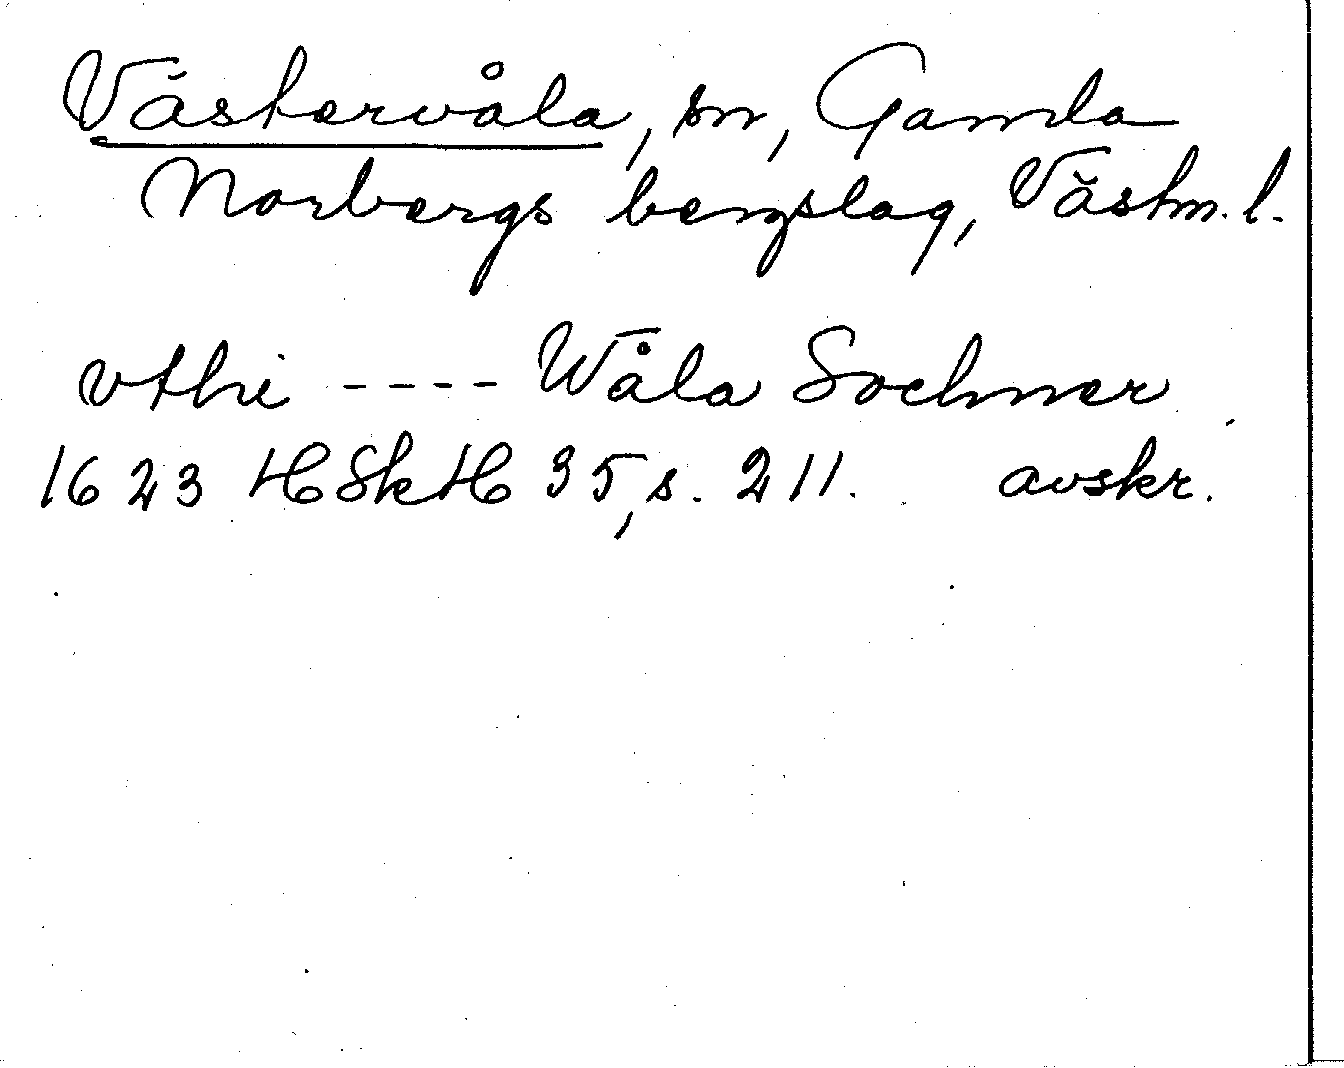 Västervåla, sn, Gamla
Norbergs bergslag, Västm. l.
vthi ---- Wåla Sochner
1623 HSkH 35, s. 211. avskr.